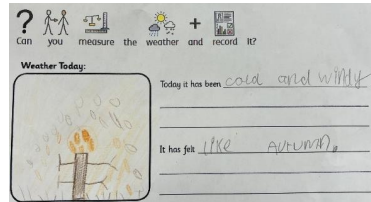 Can you measure the weather and record it?
Weather Today:
Today it has been cold and windy
It has felt like Autumn.